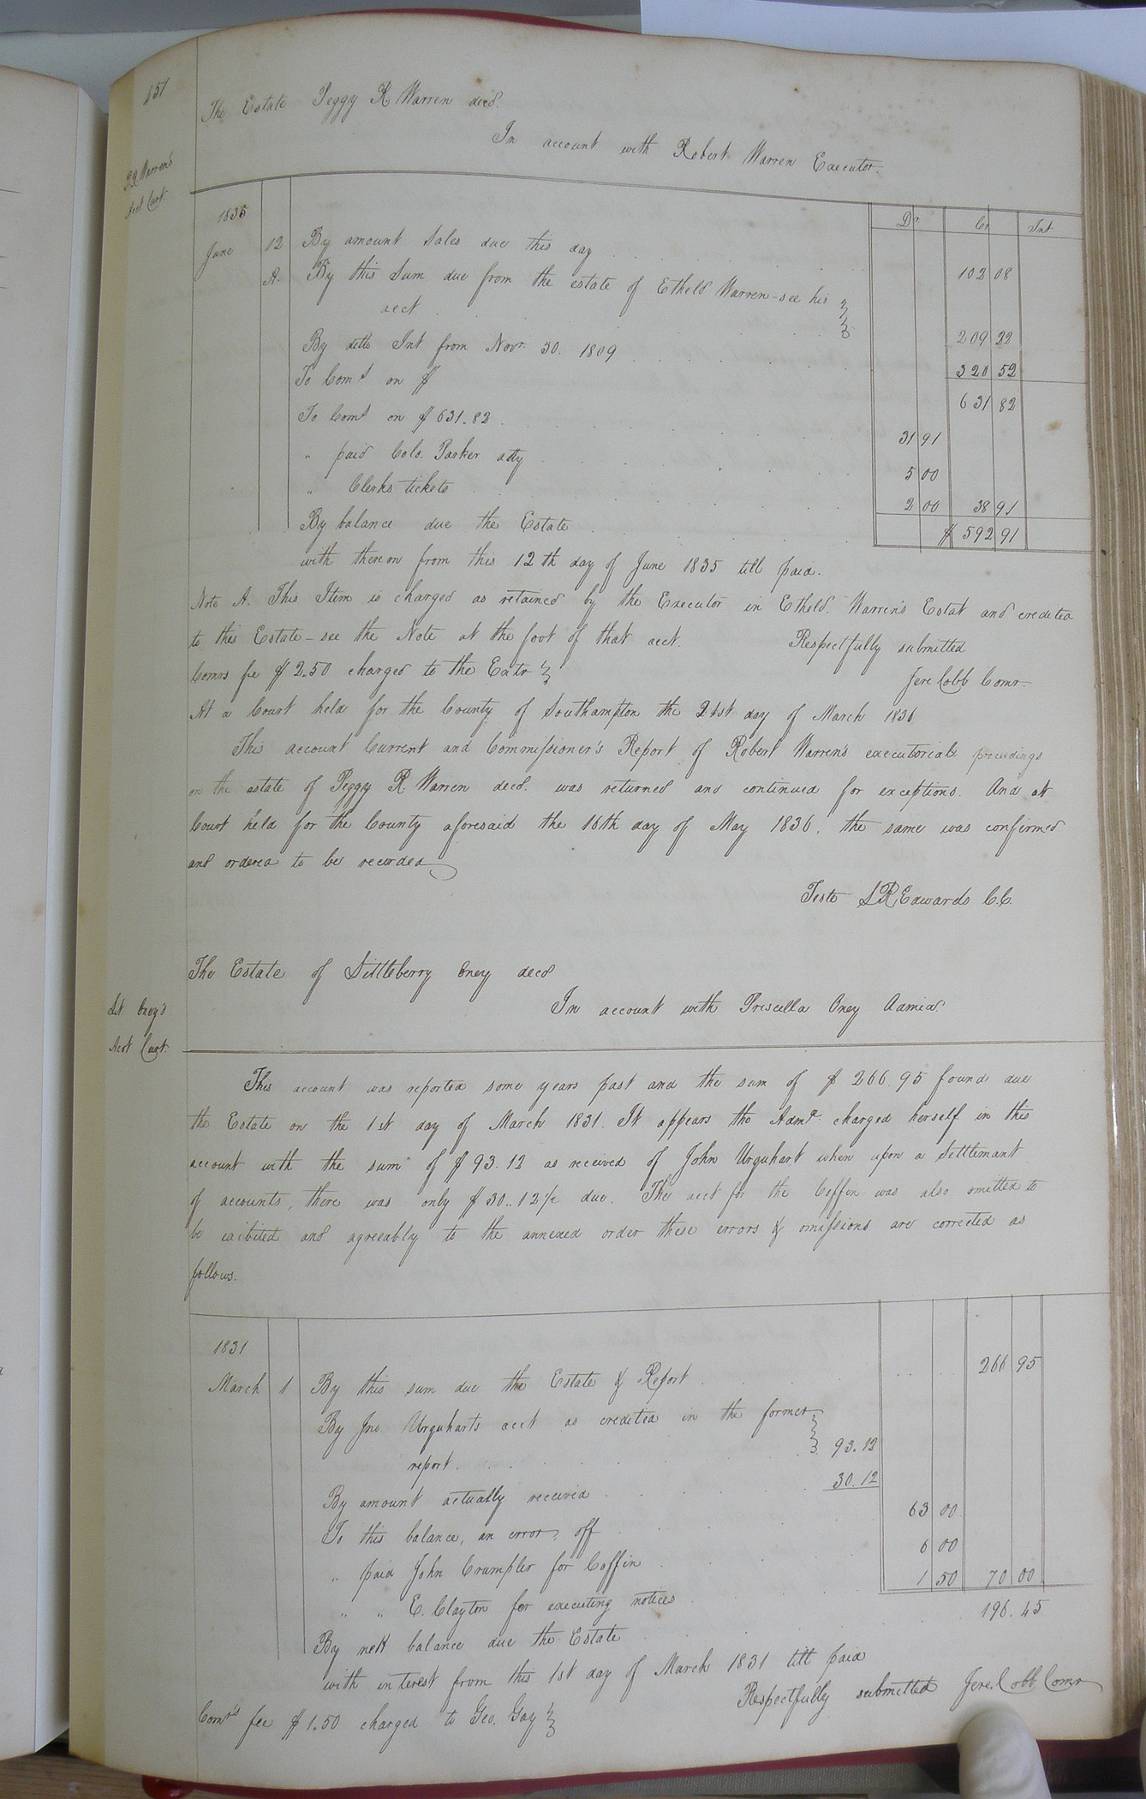 151
The Estate Peggy R Warren decd.
In account with Robert Warren Executor.
P R Warren's
Acct Curt
Dr. Cr Int
1835
June 12 By amount Sales due this day 102 08
A. By this Sum due from the estate of Etheld Warren - see his
acct 209 22
By ditto Int from Novr. 30. 1809 320 52
To Comd on $ 631 82
To Comd on $631.82 31 91
" paid Cols. Parker atty 5 00
" Clerks tickets 2 00 38 91
By balance due the Estate $ 592 91
with thereon from this 12th day of June 1835 till paid.
Note A. This Item is charged as retained by the Executor in Etheld. Warren's Estat and credited
to this Estate - see the Note at the foot of that acct. Respectfully submitted
Comrs fee $2.50 charged to the Extr Jere Cobb Comr.
At a Court held for the County of Southampton the 21st day of March 1836
This account Current and Commissioner's Report of Robert Warren's executorial proceedings
on the estate of Peggy R. Warren decd. was returned and continued for exceptions. And at
Court held for the County aforesaid the 16th day of May 1836, the same was confirmed
and ordered to be recorded
Teste L R Edwards C.C.
The Estate of Littleberry Oney decd
In account with Priscilla Oney Admix.
Lit. Oney's
Acct Curt.
This account was reported some years past and the sum of $ 266.95 found due
the Estate on the 1st day of March 1831. It appears the Admx. charged herself in this
account with the sum of $93.12 as received of John Urquhart when upon a Settlemant
of accounts, there was only $30..12/c due. The acct for the Coffin was also omitted to
be exibited and agreeably to the annexed order these errors & omissions are corrected as
follows.
1831
March 1 By this sum due the Estate & Report 266 95
By Jno. Urquharts acct as credited in the former
report 93.12
By amount actually received 30.12
To this balance, an error, off 63 00
" paid John Crumpler for Coffin 6 00
" " E. Clayton for executing notices 1 50 70 00
By nett balance due the Estate 196.45
with interest from this 1st day of March 1831 till paid
Respectfully submitted Jere. Cobb Comr
Comrs fee $1.50 charged to Geo. Gay